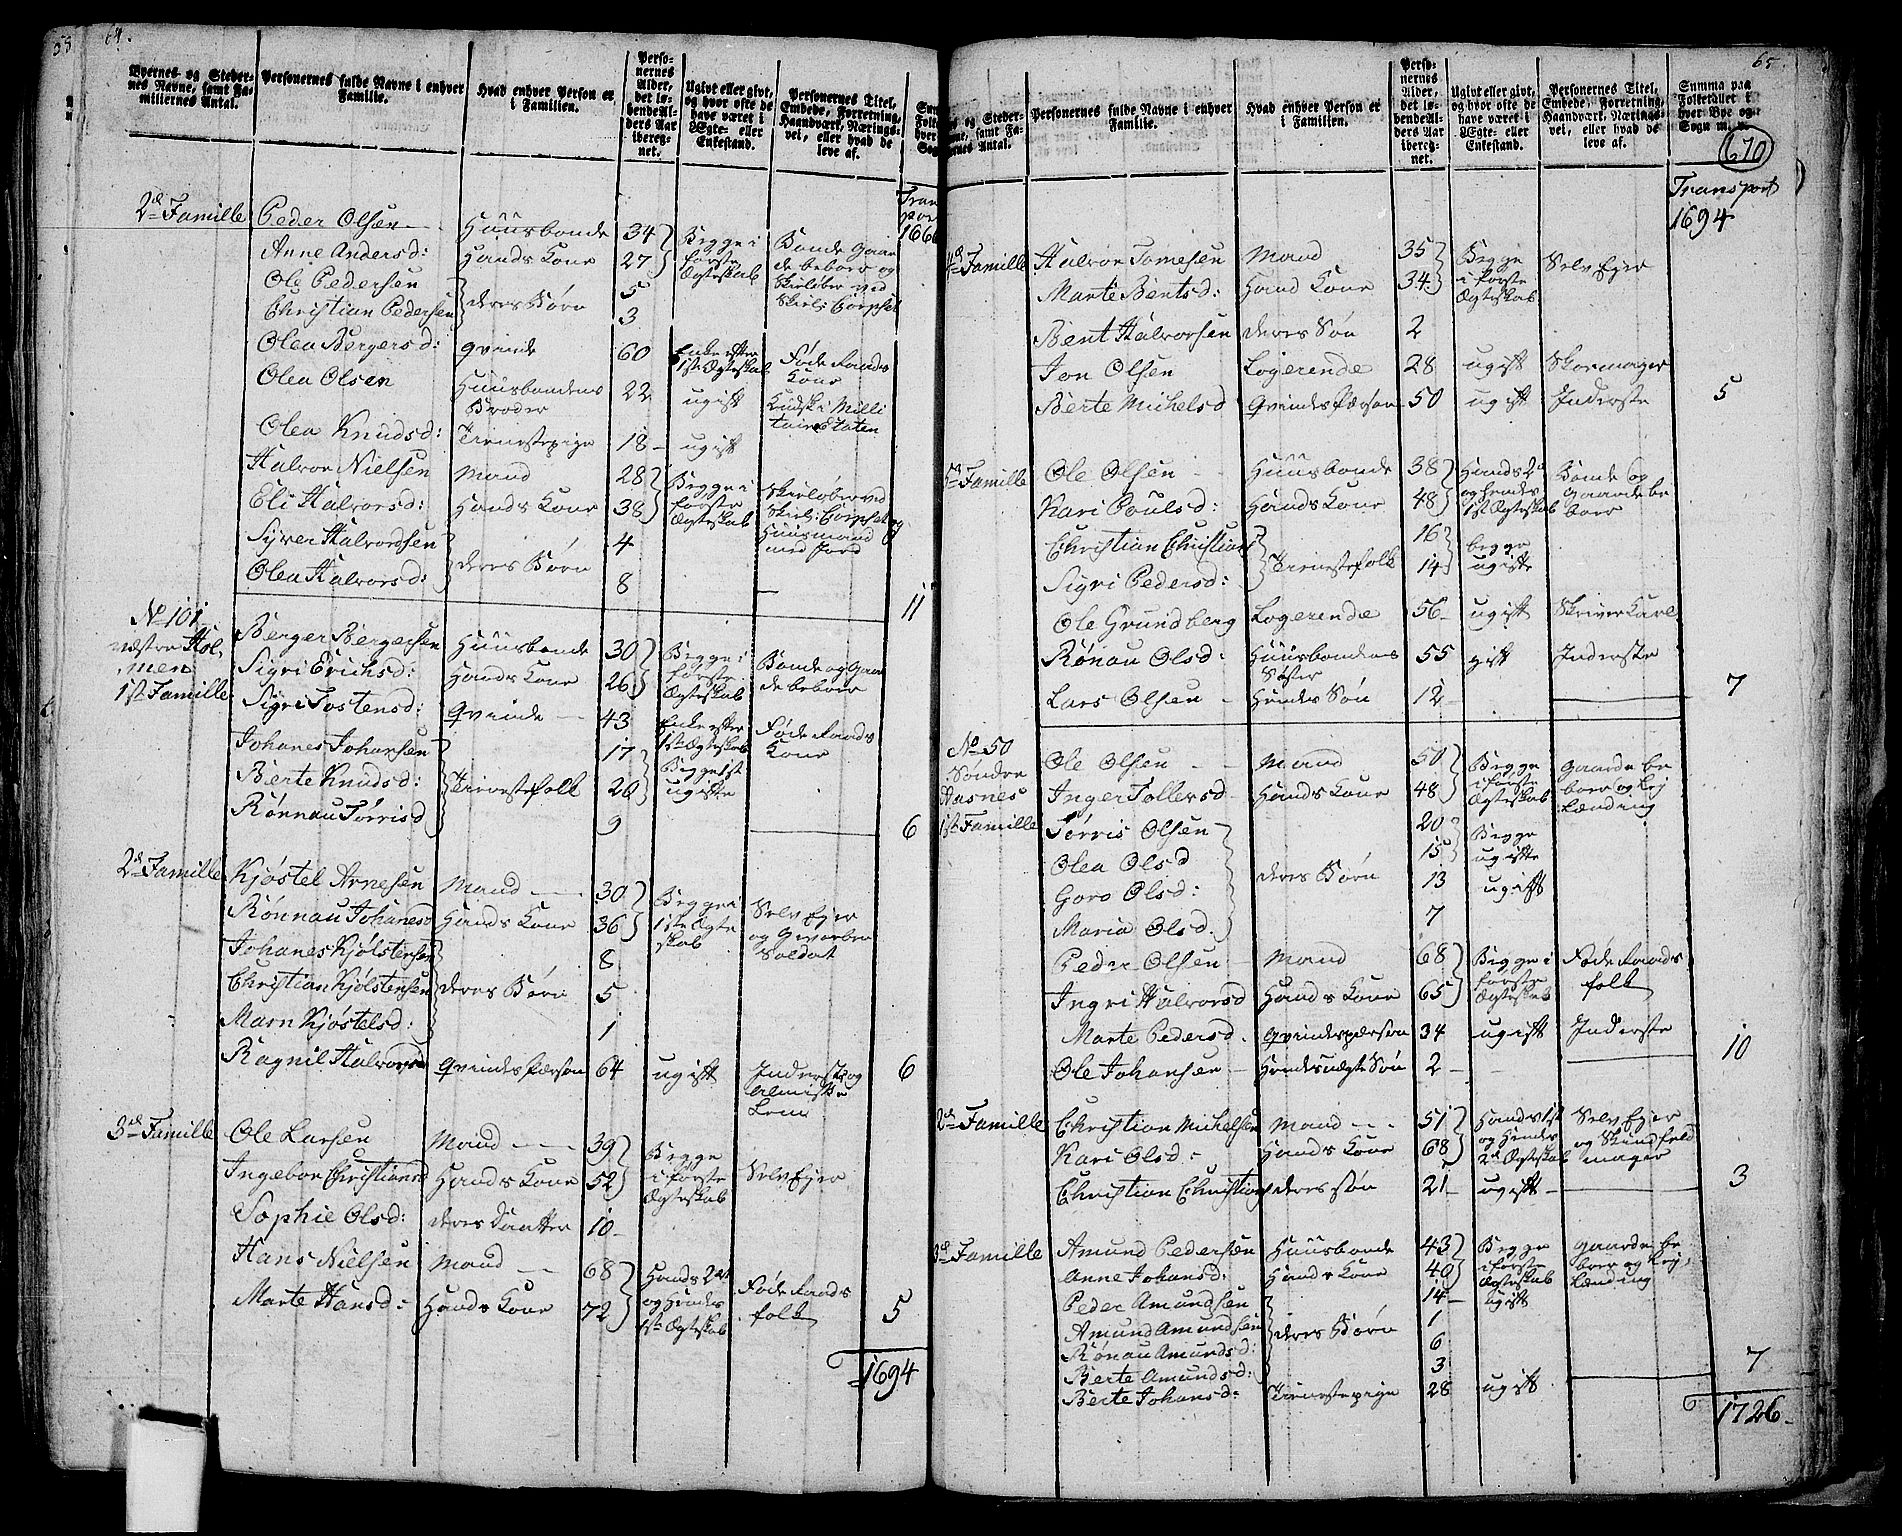 58 64.
Byernes og Steder-
nes Navne, samt Fa-
miliernes Antal.
Personernes fulde Navne i enhver
Familie.
Hvad enhver Person er
i Familien.
Perso-
nernes
Alder,
det lø-
bende Al-
ders Aar
iberegnet.
Ugivt eller givt,
og hvor ofte de
have været i
Ægte- eller
Enkestand.
Personernes Titel,
Embede, Forretning,
Haandværk, Nærings-
vei, eller hvad de
leve af.
Transport 166
2de Familie Peder Olsen Huusbonde 34 Begge i første Ægteskab Bonde Gaardebeboer og Skieløber ved Skiel: Corpset
Anne Andersd: Hands Kone 27
Ole Pedersen deres Børn 5
Christian Pedersen 3
Olea Bergersd: Qvinde 60 Enke efter 1ste Ægteskab Føde Raads Kone
Olea Olsen Huusbondens Broder 22 ugift Kudsk i Millitair Etaten
Olea Knudsd: Tienestepige 18 ugift
Halvor Nielsen Mand 28 Begge i første Ægteskab Skieløber ved Skiel: Corpset og Huusmand med Jord
Eli Halvorsd: Hands Kone 38
Syver Halvordsen deres Børn 4
Olea Halvorsd: 8
11
No 101
Vestre Hol-
men
1ste Familie
Berger Bergersen Huusbonde 30 Begge i første Ægteskab Bonde og Gaardebeboer
Sigri Erichsd: Hands Kone 26
Sigri Tostensd: Qvinde 43 Enke efter 1ste Ægteskab Føde Raads Kone
Johanes Johansen Tienestefolk 17 Begge ugifte
Berte Knudsd: 20
Rønnau Tørrisd 9
6
2de Familie Kjøstel Arnesen Mand 30 Begge i 1ste Ægteskab Selv Ejer og Gevorben Soldat
Rønnau Johanesd Hands Kone 36
Johanes Kjølstensen deres Børn 8
Christian Kjølstensen 5
Marn Kjøstelsd: 1
Ragnil Halvorsd Qvindes Person 64 ugift Inderste og Almisse Lem
6
3de Familie Ole Larsen Mand 39 Begge i første Ægteskab Selv Ejer
Ingebor Christiansd Hands Kone 52
Sophie Olsd: deres Daatter 10
Hans Nielsen Mand 68 Hands 2det og Hendes 1ste Ægteskab Føde Raads folk
Marte Hansd: Hands Kone 72
5
1694
65.
Personernes fulde Navne i enhver
Familie.
Hvad enhver Person er
i Familien.
Perso-
nernes
Alder,
det lø-
bende Al-
ders Aar
ibereg-
net.
Ugivt eller givt,
og hvor ofte de
have været i
Ægte- eller
Enkestand.
Personernes Titel,
Embede, Forretning,
Haandværk, Nærings-
vei, eller hvad de
leve af.
Summa paa
Folketallet i
hver Bye og
Sogn m. v.
670
Transport
1694
4de Familie Halvor Tomesen Mand 35 Begge i første Ægteskab Selv Ejer
Marte Bentsd: Hand Kone 34
Bent Halvorsen deres Søn 2
Jon Olsen Logerende 28 ugift Skormager
Berte Michelsd Qvindes Person 50 ugift Inderste
5
5te Familie Ole Olsen Huusbonde 38 Hands 2det og Hendes 1ste Ægteskab Bonde og Gaardebeboer
Kari Poulsd: Hands Kone 48
Christian Christians Tienestefolk 16 begge ugifte
Sigri Pedersd: 14
Ole Grundberg Logerende 56 ugift Skriver Karl
Rønau Olsd: Huusbondens Søster 55 gift Inderste
Lars Olsen Hendes Søn 12
7
No 50
Søndre
Hasnes
1ste Familie
Ole Olsen Mand 50 Begge i første Ægteskab Gaardebeboer og Lejlænding
Inger Tollevsd Hands Kone 48
Tørris Olsen deres Børn 20 Begge ugifte
Olea Olsd 15
Goro Olsd: 13 ugift
Maria Olsd. 7
Peder Olsen Mand 68 Begge i første Ægteskab Føde Raads folk
Ingri Halvorsd Hands Kone 65
Marte Pedersd. Qvindesperson 34 ugift Inderste
Ole Johansen Hendes uægte Søn 2
10
2de Familie Christian Michelsen Mand 51 Hands 1st og Hendes 2det Ægteskab Selv Ejer og Skindfeldmager
Kari Olsd: Hands Kone 68
Christian Christians deres søn 21 ugift
3
3de Familie Amund Pedersen Huusbonde 43 Begge i første Ægteskab Gaardebeboer og Lejlænding
Anne Johansd: Hands Kone 40
Peder Amundsen deres Børn 14 ugift
Amund Amundsen 1
Rønau Amundsd: 6
Berte Amundsd: 3
Berte Johansd: Tienestepige 28 ugift
7
1726